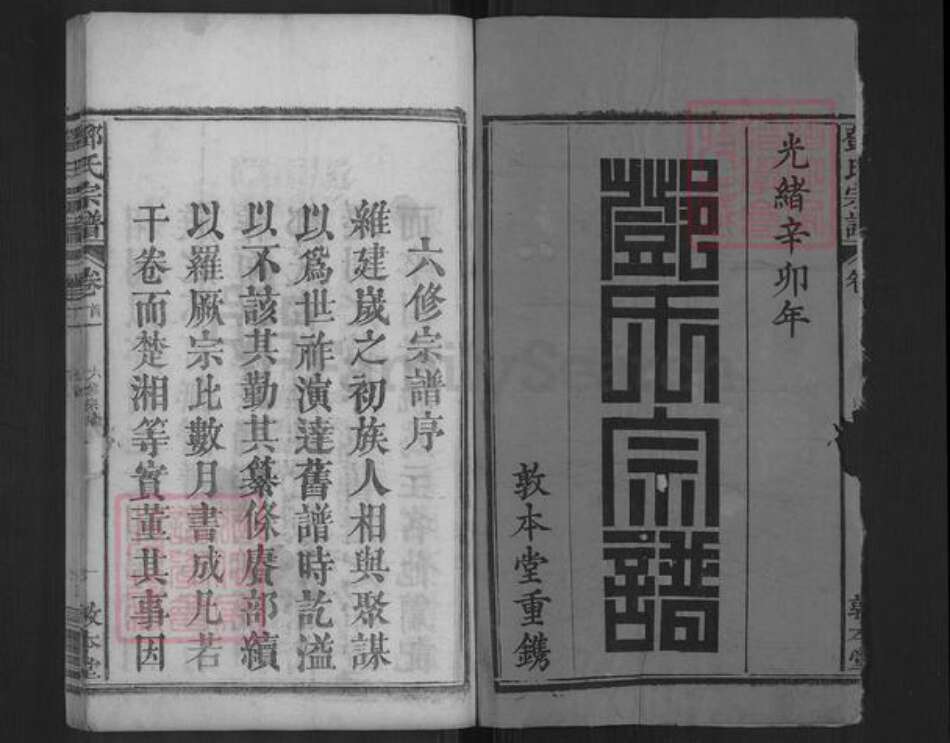 光緒辛卯年
鄧氏宗譜
敦本堂重鐫
六修宗譜序
雒建嵗之初族人相與聚謀
以爲世祚演達舊譜時訖溢
以不該其勤其纂條賡部續
以羅厥宗比數月書成凡若
干卷而楚湘等實董其事因
鄧氏宗譜
卷首
敦本堂